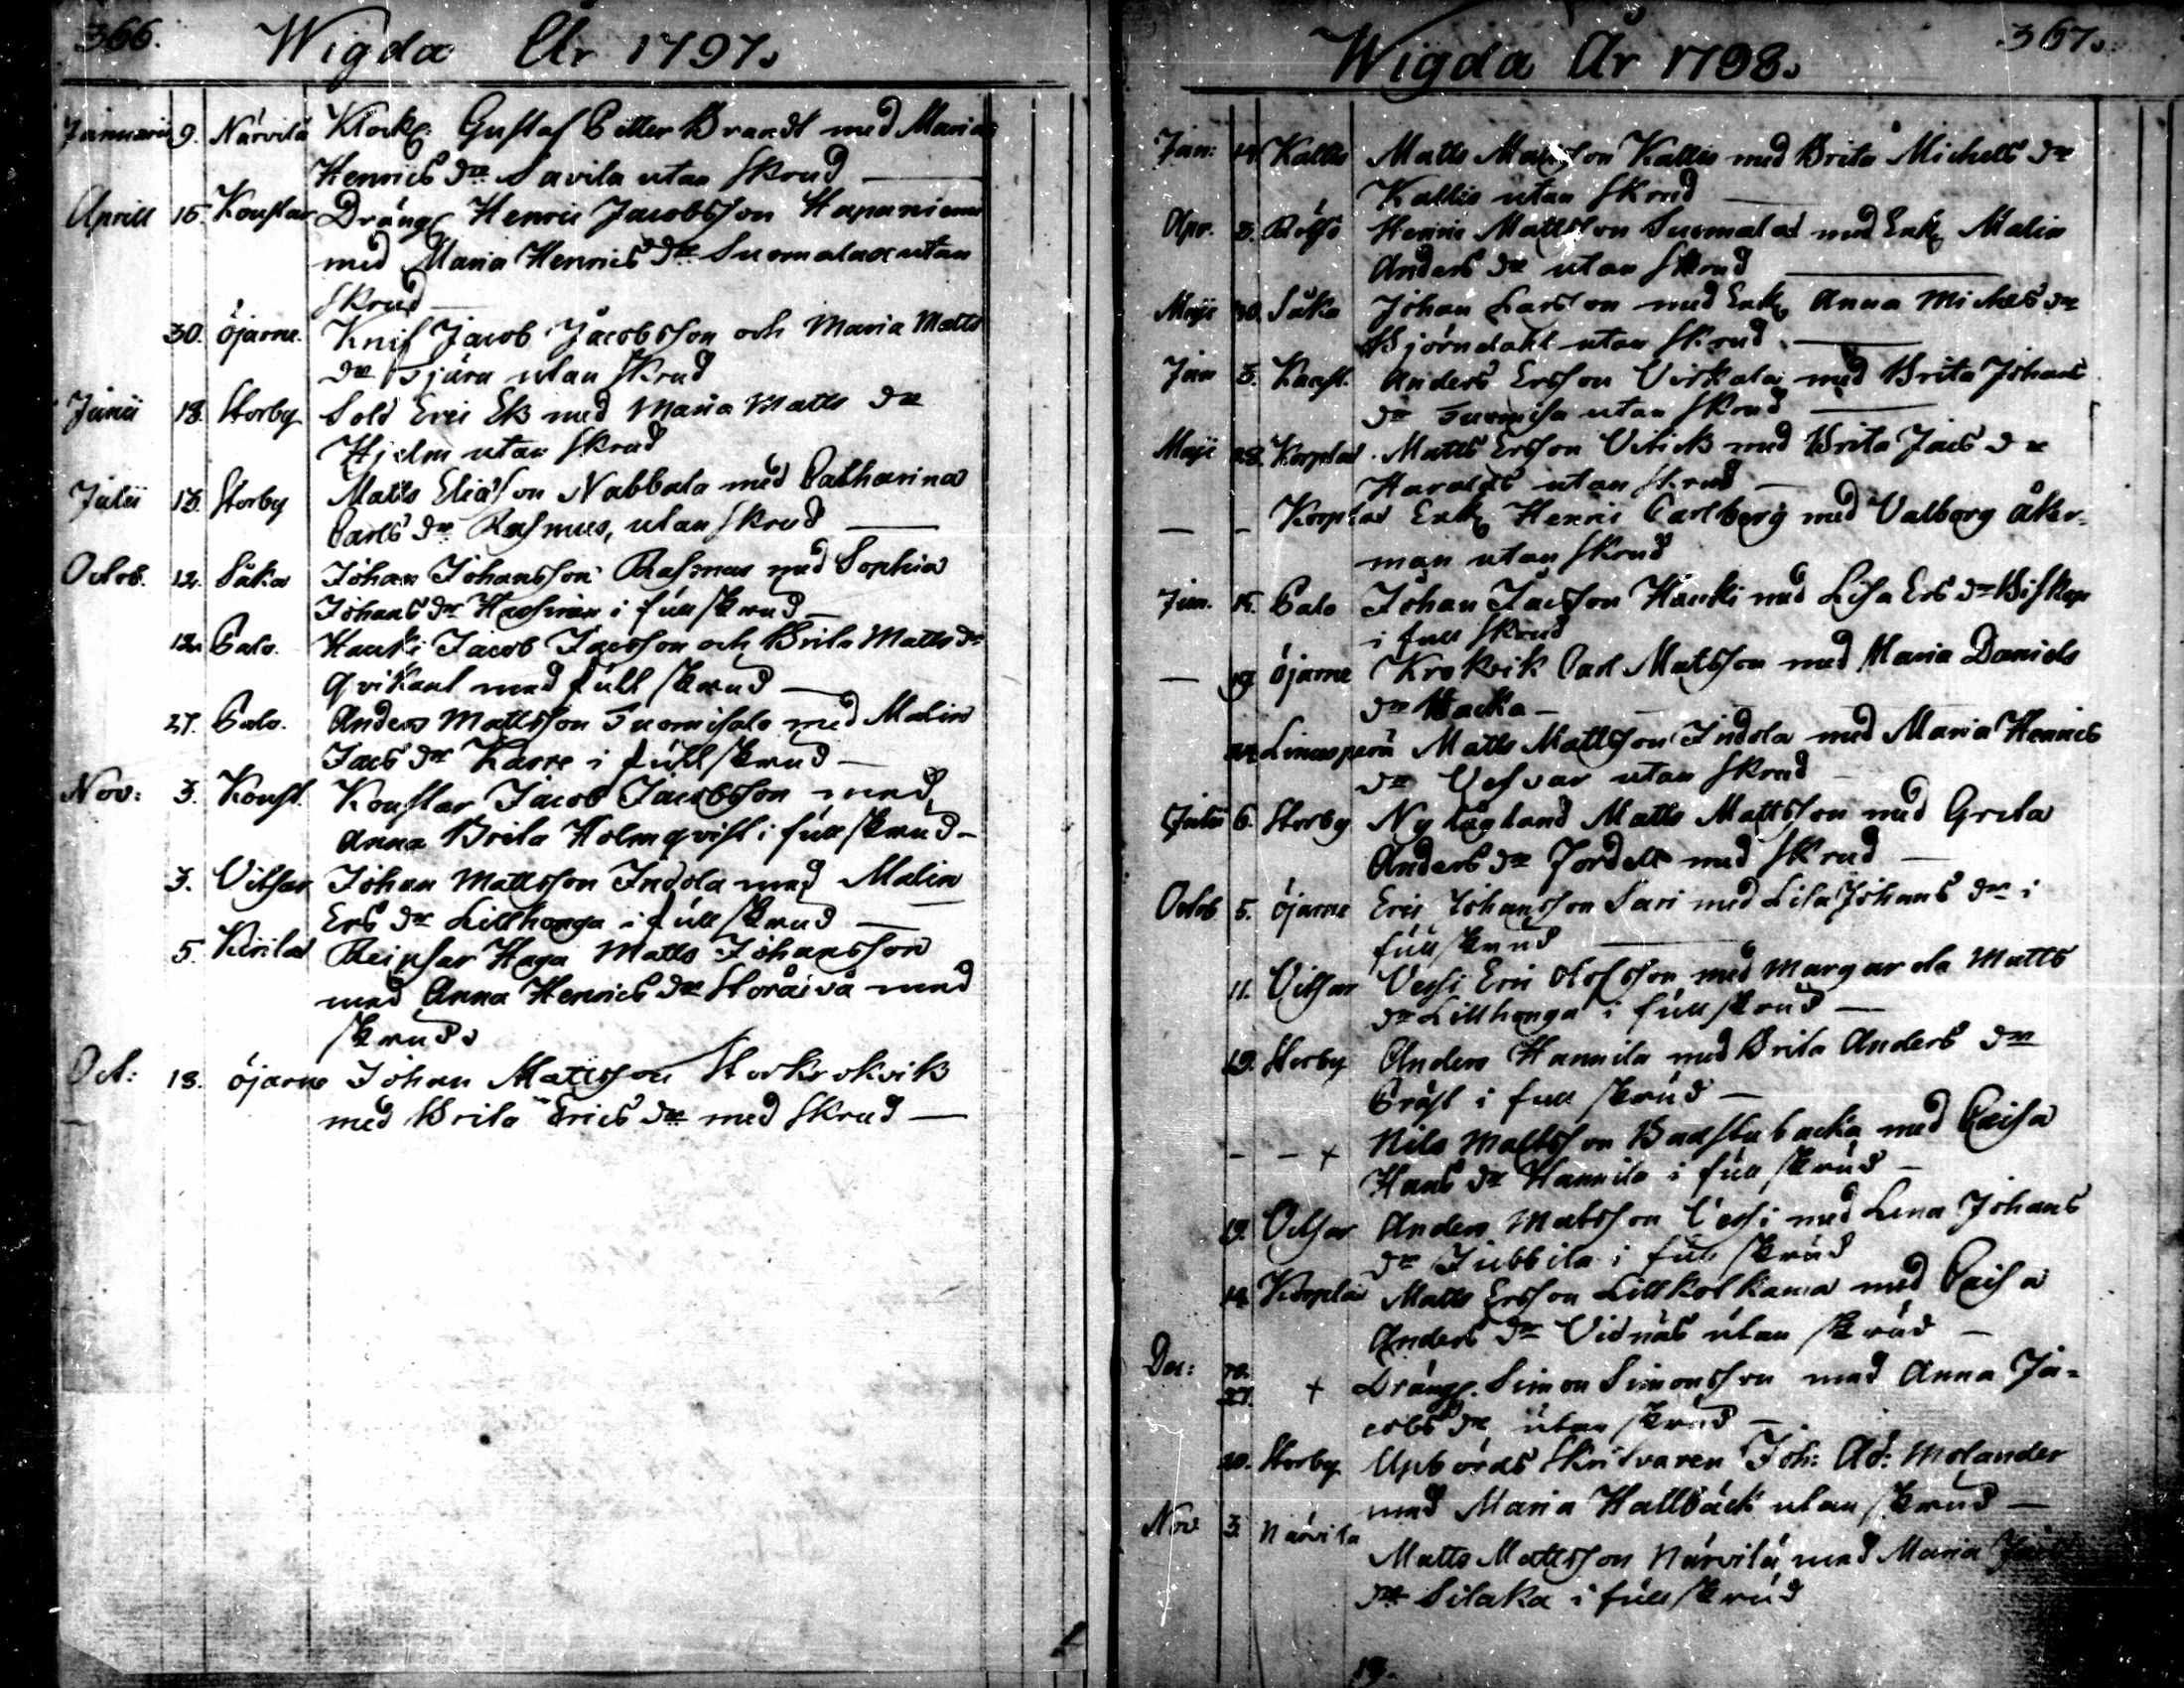 366.
Wigda År 1797.
Januarii 9. Närvilä Klock: Gustaf Petter Brandt med Maria
Henrics dr Savila utan skrud
Aprill 15. Konstar Dräng Henric Jacobsson Hapaniemi
med Maria Henrics dr Suomalax utan
skrud
30. öjarne. Knif Jacob Jacobsson och Maria Matts
dr Pjära utan skrud
Junii 18. Storby Sold Eric Ek med Maria Matts dr
Hjelm utan skrud
Julii 13. Storby Matts Eliasson Nabbala med Catharina
Carls dr Rasmus, utan skrud
Octob. 12. Såka Johan Johansson Rasmus med Sophia
Johans dr i full skrud
12. Palo. Hauki Jacob Jacsson och Brita Matts dr
Qvikant med full skrud
27. Palo. Anders Mattsson Tuomisalo med Malin
Jacs dr Karre i full skrud
Nov: 3. Konst. Konstar Jacob Jacobsson med
Anna Brita Holmqvist i full skrud
3. Vitsar Johan Mattsson Indola med Malin
Ers dr Lillhonga i full skrud
5. Kirilax Reipsar Haga Matts Johansson
med Anna Henrics dr Storåivå med
skrud
Oct: 18. öjarne Johan Mattsson Storkrokvik
med Brita Erics dr med skrud
367.
Wigda År 1798.
Jan: 14. Kallis Matts Mattsson Kallis med Brita Michels dr
Kallis utan skrud
Apr. 3. Rölsö Henric Mattsson Suomalax med Enk Malin
Anders dr utan skrud
Maji 30. Såka Johan Larsson med Enk Anna Michels dr
Björndahl utan skrud
Jun 3. Kanst. Anders Ersson Virkala med Brita Johans
dr Tuomisa utan skrud
Maji 28. Korplax Matts Ersson Vitick med Brita Jacs dr
Haralds utan skrud
— - Korplax Enk Henric Carlborg med Valborg åker-
man utan skrud
Jun. 14. Palo Johan Jacsson Hauki med Lisa Ers dr Biskop
i full skrud
— 19 öjarne Krokvik Carl Matsson med Maria Daniels
dr Backa
24. Linusperä Matts Mattsson Indola med Maria Henrics
dr Vesvar utan skrud
Julii 6. Storby Ny Lågland Matts Mattsson med Greta
Anders dr Jordelt med skrud
Octob 5. öjarne Eric Johansson Sari med Lisa Johans dr i
full skrud
11. Vitsar Vessi Eric Olofsson med Margareta Matts
dr Lillhonga i full skrud
19. Storby Anders Hannila med Brita Anders dr
Präst i full skrud
- - + Nils Mattsson Badstubacka med Caisa
Hans dr Hannila i full skrud
9. Vitsar Anders Matsson Vessi med Lena Johans
dr Jubbila i full skrud
14. Korplax Matts Ersson Lillkolkama med Caisa
Anders dr Vidnäs utan skrud
Dec: 27. + Dräng. Simon Simonsson med Anna Ja-
cobs dr utan skrud
20. Storby Upbörds Skrifvaren Joh: Ad: Molander
med Maria Hallbäck utan skrud
Nov 3. Närvilä
Matts Mattsson Närvilä med Maria
dr Silaka i full skrud